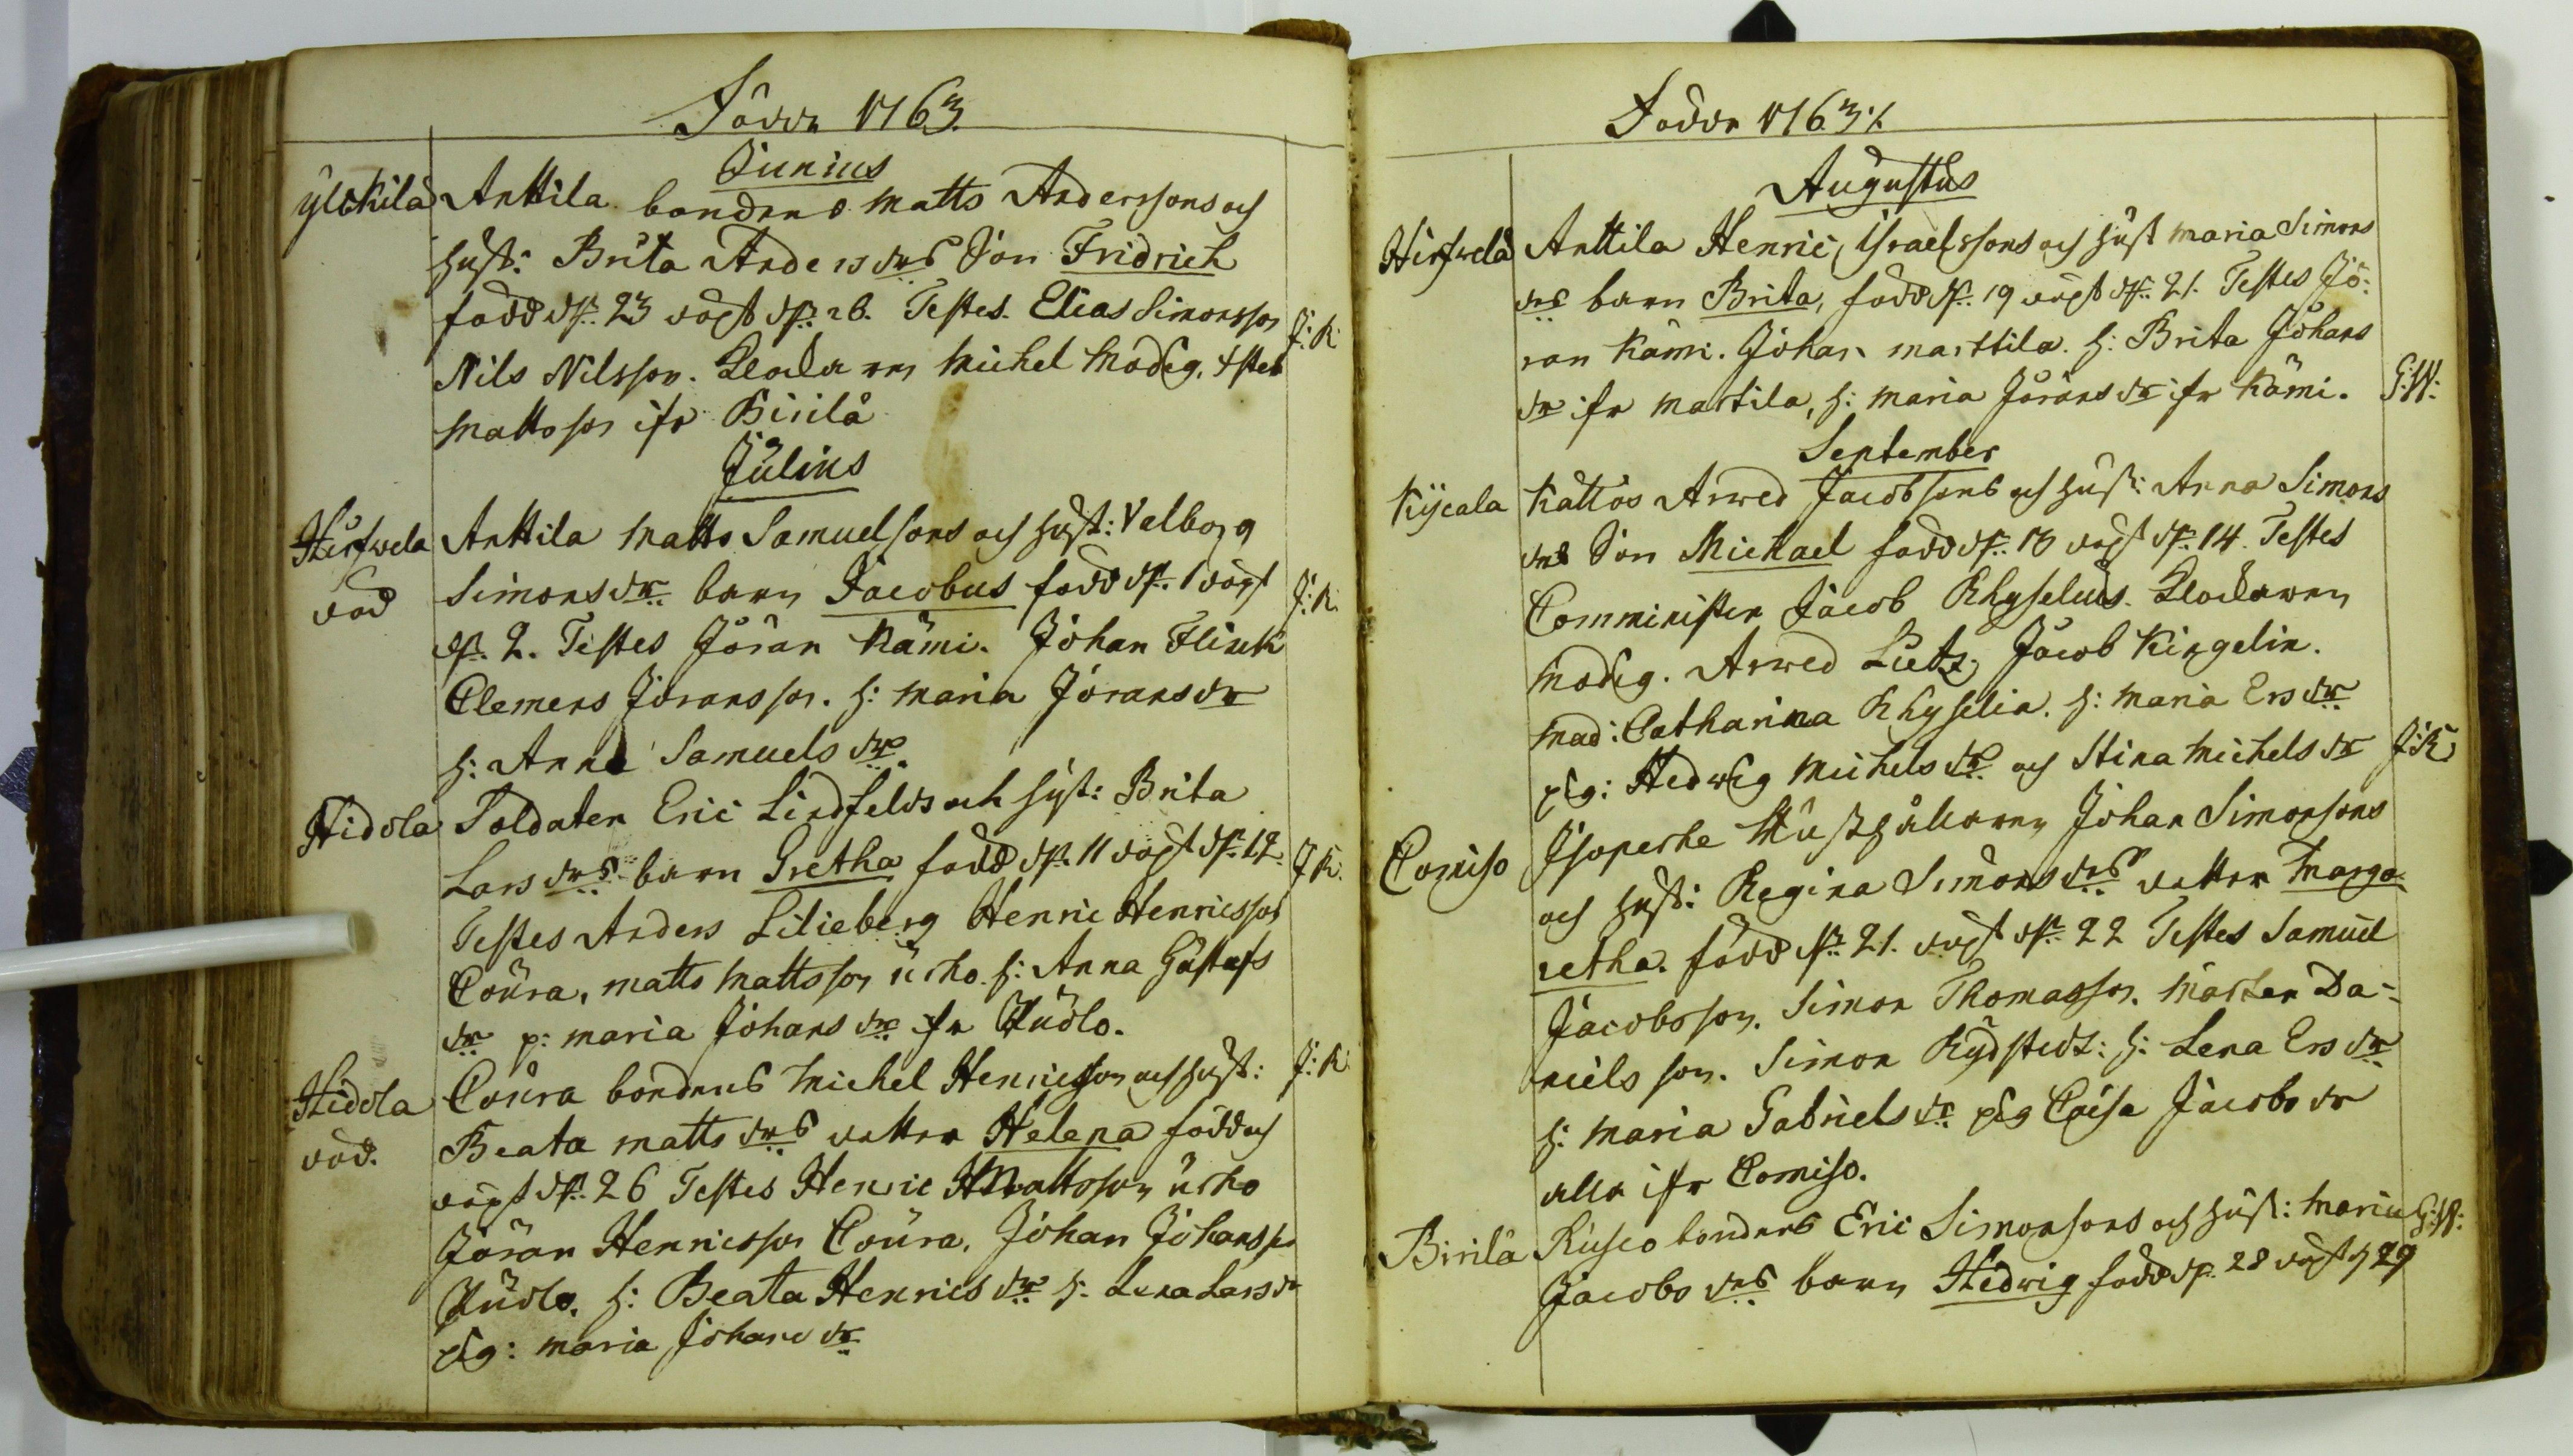 Födde 1763.
Junius
Ylikilä Anttila bondens Matts Anderssons och
hust: Brita Anders drs Son Fridrich
född d: 23 döpt d: 26. Testes. Elias Simonsson J: K:
Nils Nilsson. Klockaren Michel Modeg,
Mattsson ifr Birilä
Julius
Hirfwela Anttila Matts Samuelsons och hust: Valborg
död Simons dr barn Jacobus född d: 1 döpt J: K:
d: 2. Testes Jöran Kämi. Johan Flinck
Clemens Jöransson. h: Maria Jörans dr
h: Anna Samuels dr.
Hidola Soldaten Eric Lindfelds och hust: Brita
Lars drs barn Gretha född d: 11 döpt d: 12. J K.
Testes Anders Lilieberg Henric Henricsson
Coura, Matts Mattsson Urho. h: Anna Gustafs
dr p: Maria Johans dr ifr Hudlo.
Hidola Coura bondens Michel Henricson och hust: J: K:
död. Beata Matts drs dotter Helena född och
döpt d: 26 Testes Henric Mattsson Urho
Jöran Henricsson Coura, Johan Johansso
h: Beata Henrics dr h: Lena Lars dr
pig: Maria Johans dr
Födde 1763 ./.
Augustus
Hirfwelä Anttila Henric, Israelssons och hust Maria Simons
drs barn Brita, född d: 19 döpt d: 21. Testes Jö-
ran Kämi. Johan Marttila. h: Brita Johans
dr ifr Martila, h: Maria Jörans dr ifr Kämi. G: W:
September
Kycala Kattos Arwed Jacobsons och hust: Anna Simons
drs Son Michael född d: 13 döpt d: 14. Testes
Comminister Jacob Rhyselius. Klockaren
Modeg. Arwed Lietz, Jacob Kingelin.
Mad: Catharina Rhyselia. h: Maria Ers dr
pig: Hedwig Michels dr och Stina Michels dr J: K:
Comiso Isoperhe Hushållaren Johan Simonsons
och hust: Regina Simons drs dotter Marga-
retha. född d: 21. döpt d: 22 Testes Samuel
Jacobsson. Simon Thomasson. Mårten Da-
niels son. Simon Rydstedt: h: Lena Ers dr
h: Maria Gabriels dr pig Caisa Jacobs dr
alla ifr Comiso.
Birilä Rusco bondens Eric Simonsons och hust: Maria G: W:
Jacobs drs barn Hedwig född d: 28 döpt d 29